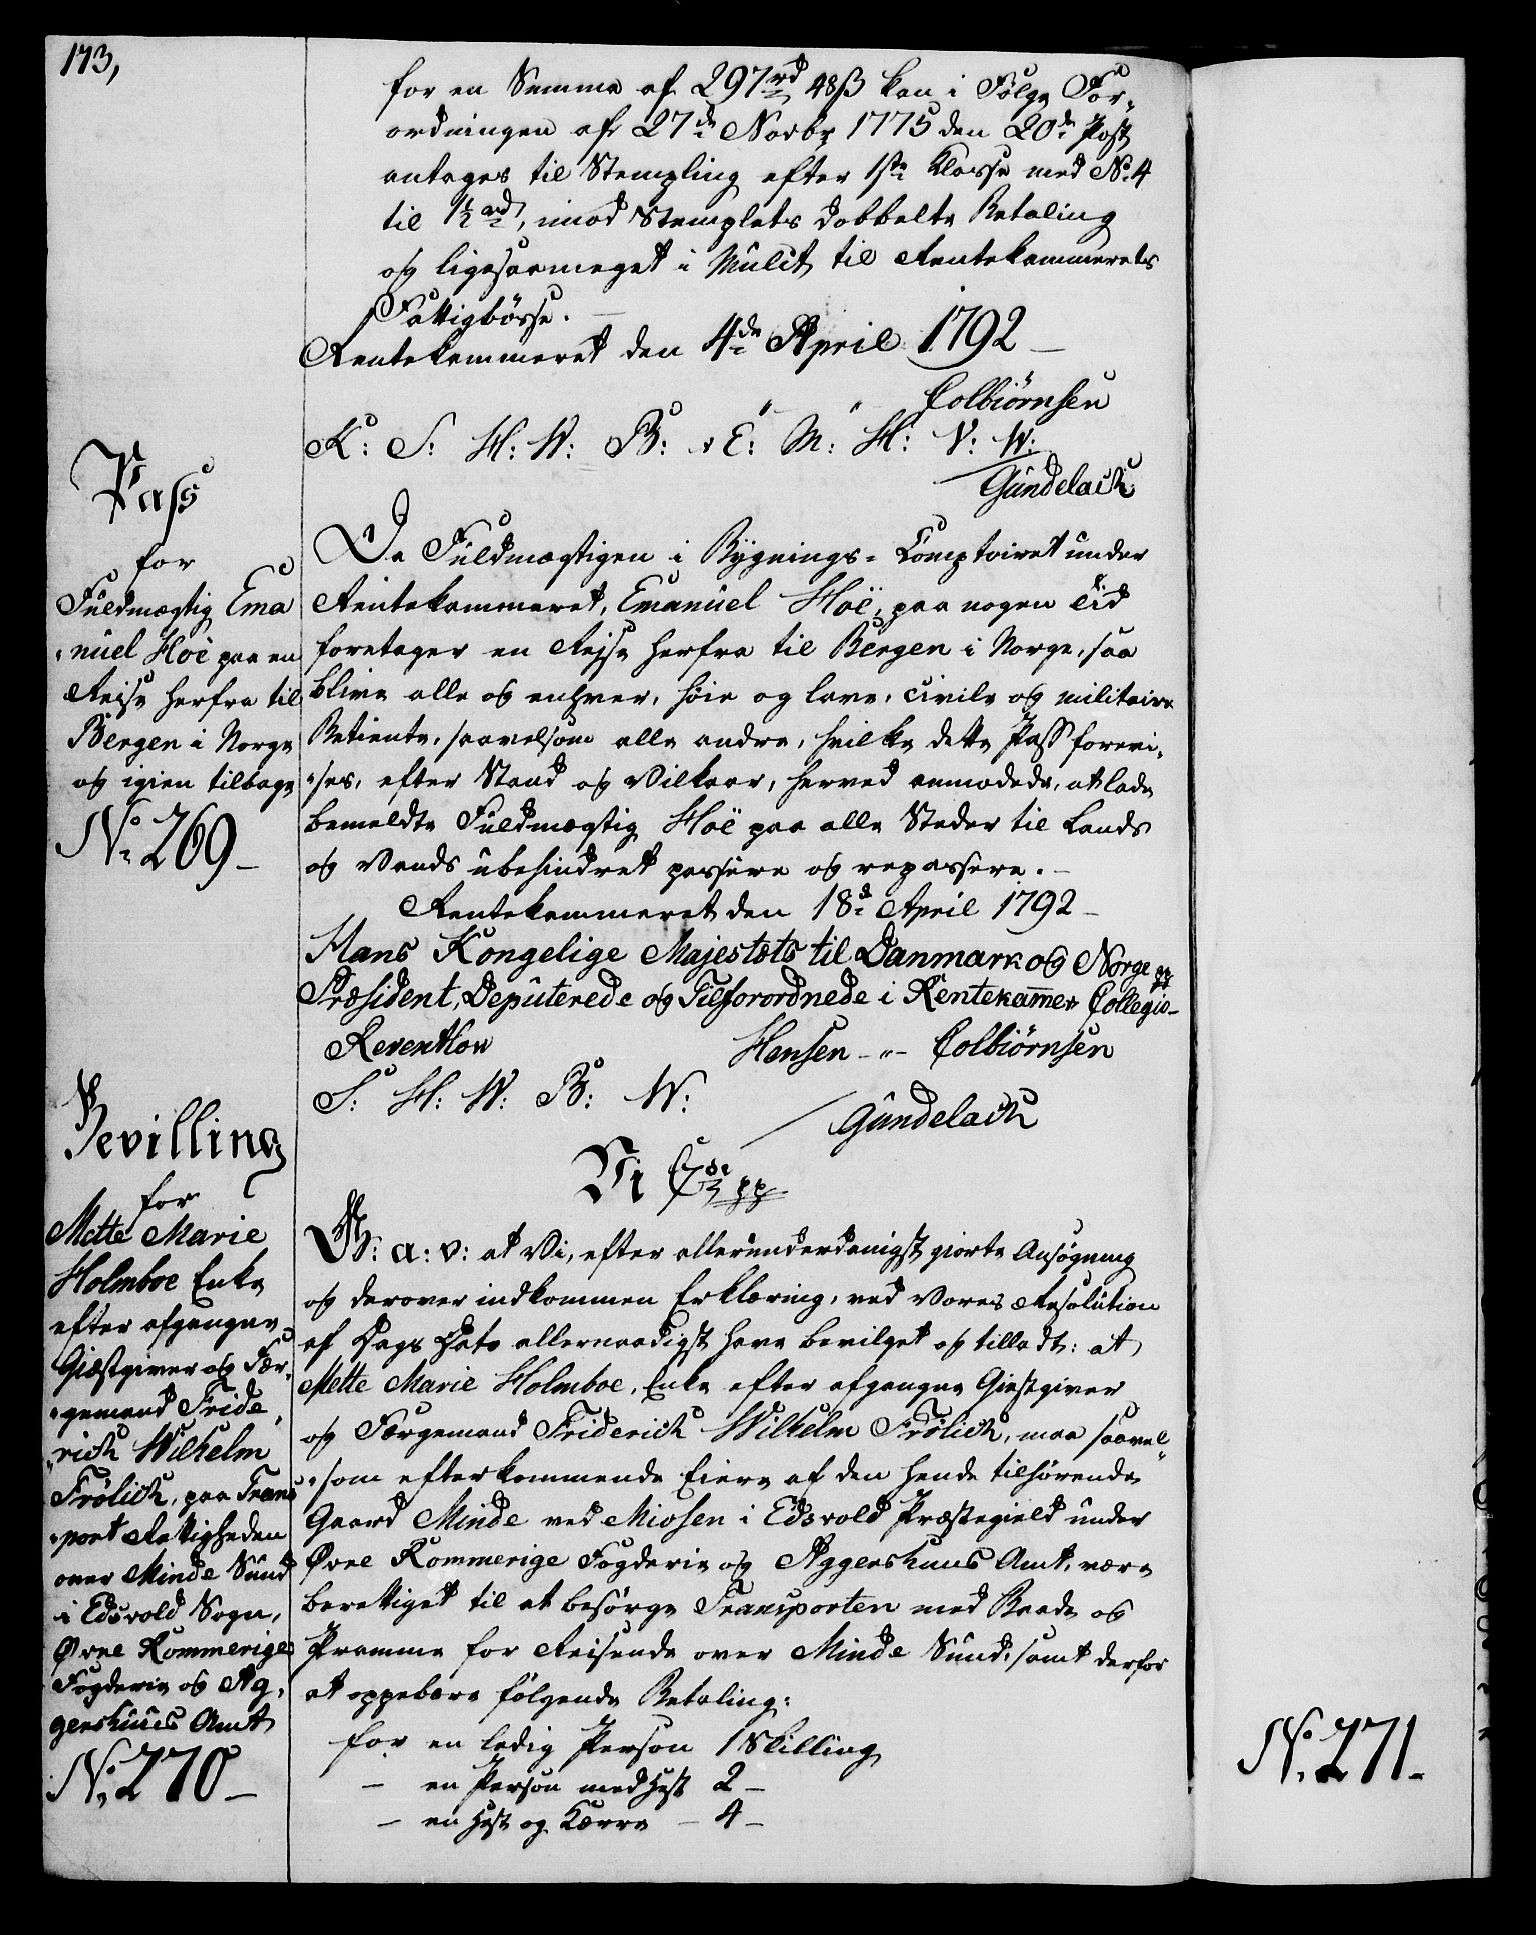 173,
for en Summa af 297rd 48ß kan i Følge For-
ordningen af 27de Novbr 1775 den 20de Post
antages til Stempling efter 1ste Klasse med No 4
til 1½ rd, imod Stemplets dobbelte Betaling
og ligesaameget i Mulct til Rentekammerets
Fattigbösse.
Rentekammeret den 4de April 1792
Colbiörnsen
K: S: H: W: B: E: M: H: V: W:
Gündelach
Pass
for
Fuldmægtig Ema
nüel Hoë paa en
Reise herfra til
Bergen i Norge
og igien tilbage
No 269
Da Fuldmægtigen i Bygnings-Comptoiret under
Rentekammeret, Emanüel Hoë, paa nogen Tid
foretager en Rejse herfra til Bergen i Norge, saa
blive alle og enhver, höie og lave, civile og militaire
Betiente, saavelsom alle andre, hvilke dette Pass forevi-
ses, efter Stand og Vilkaar, herved anmodede, at lade
bemeldte Fuldmægtig Hoë paa alle Steder til Lands
og Vands ubehindret passere og repassere.
Rentekammeret den 18de April 1792
Hans Kongelige Majestæts til Danmark og Norge pp
Præsident, Depüterede og Tilforordnede i Rentekammer Collegio
Reventlow Hansen Colbiörnsen
S: H: W: B: W:
Gündelach
Bevilling
for
Mette Marie
Holmboe Enke
efter afgangne
Giæstgiver og Fær-
gemand Fride
rich Wilhelm
Frölich, paa Trans
port Rettigheden
over Minde Sund
i Edsvold Sogn,
Øvre Rommerige
Fogderie og Ag-
gershuus Amt
No 270
Vi C 7de pp
G: a: v: at Vi, efter allerunderdanigst giorte Ansögning
og derover indkommen Erklæring, ved Vores Resolution
af Dags Dato allernaadigst have bevilget og tilladt: at
Mette Marie Holmboe, Enke efter afgangne Giestgiver
og Færgemand Friderich Wilhelm Frölich, maa saavel
som efterkommende Eiere af den hende tilhörende
Gaard Minde ved Miosen i Edsvold Præstegield under
Øvre Rommerige Fogderie og Aggershuus Amt, være
berettiget til at besörge Transporten med Baade og
Pramme for Reisende over Minde Sund, samt derfor
at oppebære fölgende Betaling:
for en ledig Person 1 Skilling
— en Person med Hest 2 —
— en Hest og Kærre — 4 —
No 271